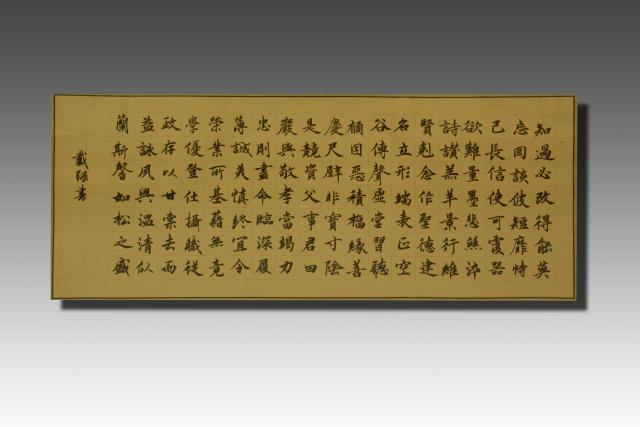 知過必改得能莫
忘罔談彼短靡恃
己長信使可覆器
欲難量墨悲絲染
詩讃羔羊景行維
賢剋念作聖德建
名立形端表正空
谷傳聲虛堂習聽
禍因惡積福緣善
慶尺璧非寶寸陰
是競資父事君曰
嚴與敬孝當竭力
忠則盡命臨深履
薄誠美慎終宜令
榮業所基藉無竟
學優登仕攝職從
政存以甘棠去而
益詠夙興溫清似
蘭斯馨如松之盛
戴强書